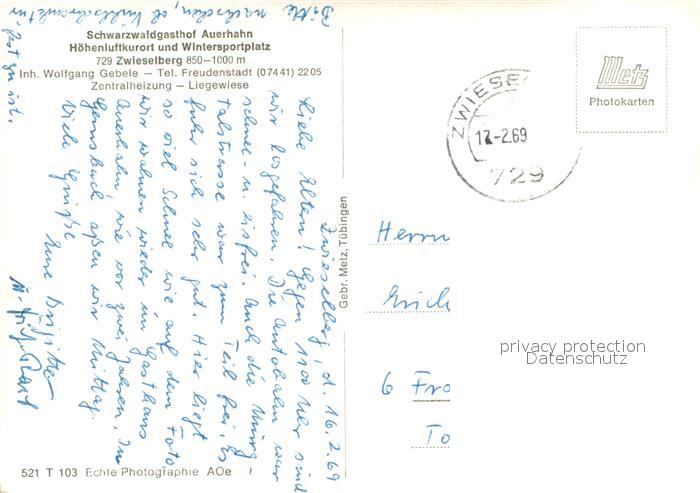 Bitte nachsehen, ob
fest zu ist.
Schwarzwaldgasthof Auerhahn
Höhenluftkurort und Wintersportplatz
729 Zwieselberg 850—1000 m
Inh. Wolfgang Gebele — Tel. Freudenstadt (07441) 2205
Zentralheizung — Liegewiese
Zwieselberg, d. 16.2.69
Liebe Eltern! Gegen 1100 Uhr sind
wir losgefahren. Die Autobahn war
schnee- u. eisfrei. Auch die Murg-
talstrasse war zum Teil frei. Es
fuhr sich sehr gut. Hier liegt
so viel Schnee wie auf dem Foto
wir wohnen wieder im Gasthaus
Auerhahn, wie vor zwei Jahren. In
Gernsbach aßen wir Mittag.
Viele Grüße
Eure Brigitte
u.
521 T 103 Echte Photographie AOe
Gebr. Metz, Tübingen
ZWIESEL
17.-2.69
729
Metz
Photokarten
Herrn
Erich
6 Fra
To
privacy protection
Datenschutz